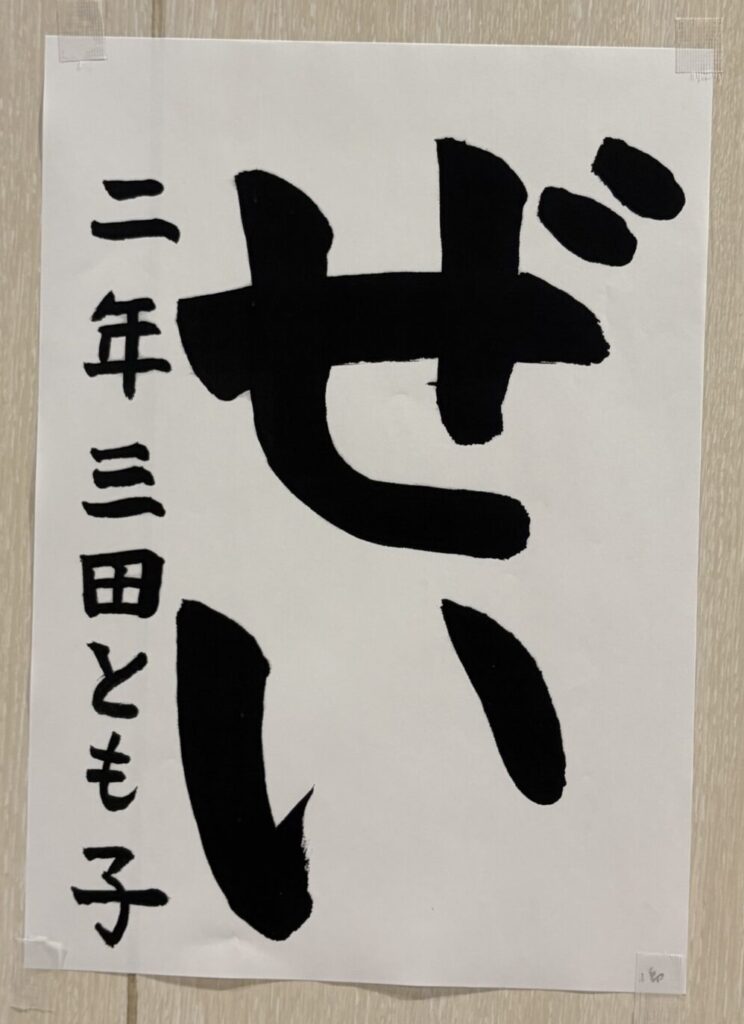 ぜい
二年 三田とも子